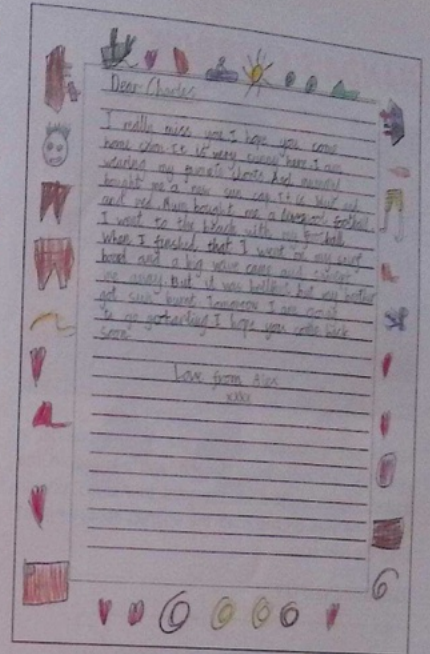 Dear Charles
I really miss you. I hope you come
home soon. It is very sunny here. I am
wearing my shorts. And mummy
bought me a new sun cap. It is blue
and red. Mum bought me a liverpool football.
I went to the beach with my football
When I finished that I went on my surf
bored and a big wave came and
me away. But it was brilliant but my brother
got sun burnt. Tomorrow I am
to go gocarting. I hope you come back
soon.
Love from Alex
xxxx